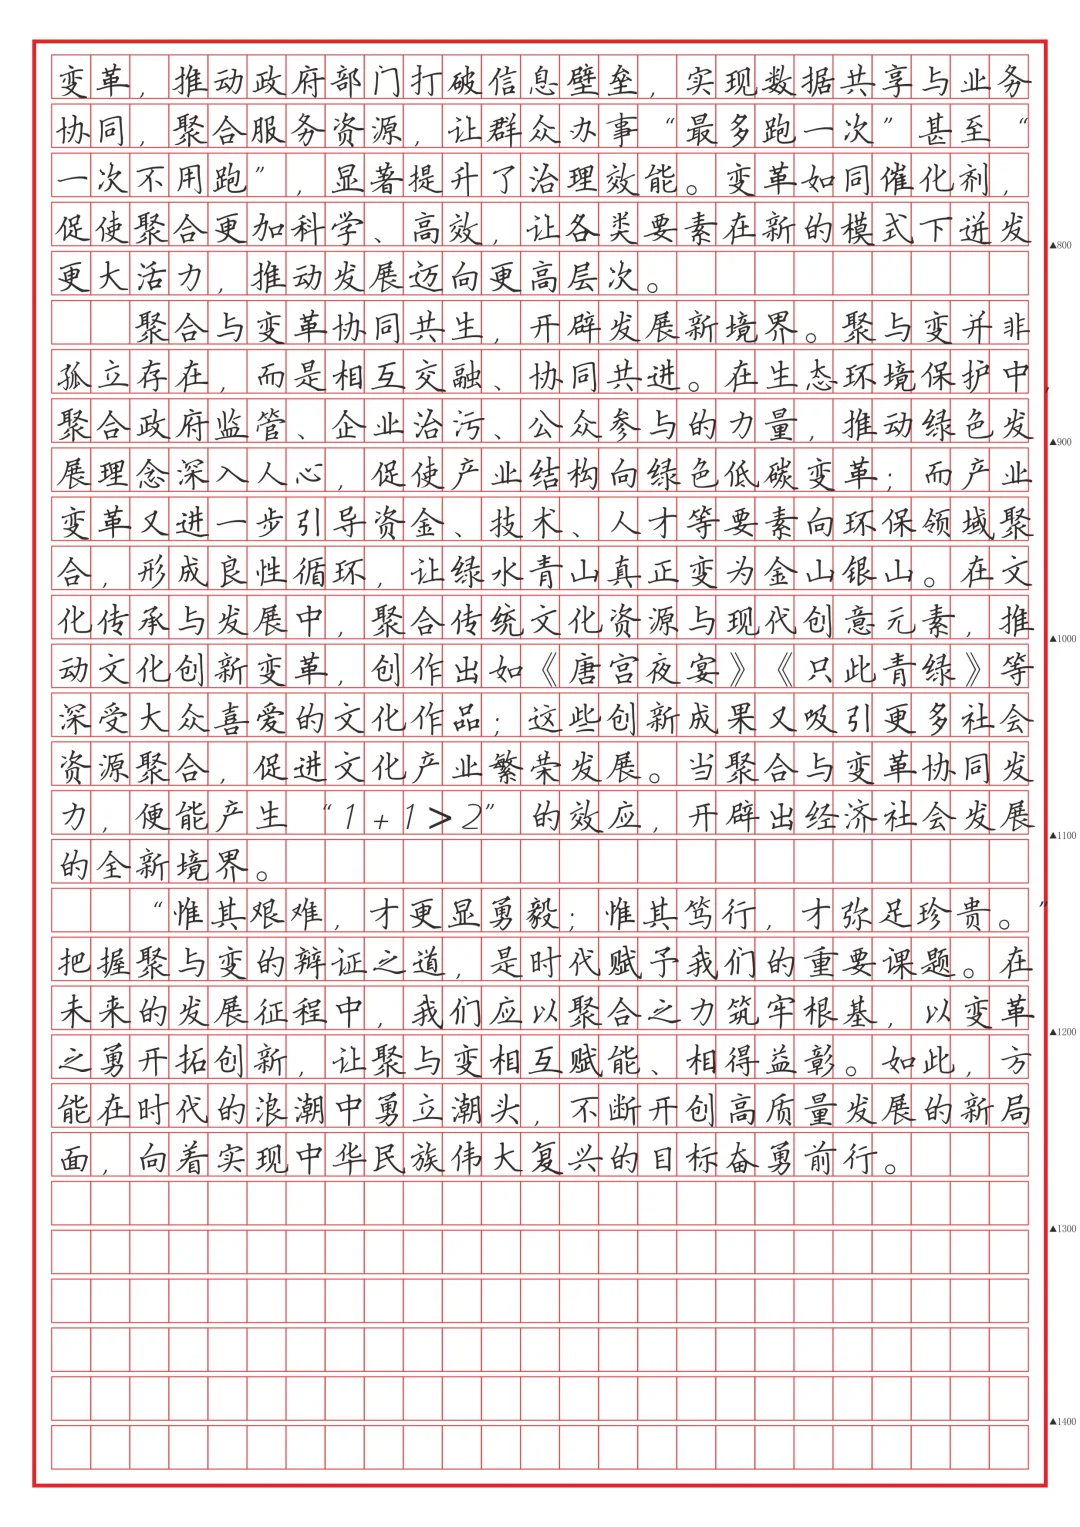 变革，推动政府部门打破信息壁垒，实现数据共享与业务
协同，聚合服务资源，让群众办事“最多跑一次”甚至“
一次不用跑”，显著提升了治理效能。变革如同催化剂，
促使聚合更加科学、高效，让各类要素在新的模式下迸发
▲800
更大活力，推动发展迈向更高层次。
聚合与变革协同共生，开辟发展新境界。聚与变并非
孤立存在，而是相互交融、协同共进。在生态环境保护中，
聚合政府监管、企业治污、公众参与的力量，推动绿色发
▲900
展理念深入人心，促使产业结构向绿色低碳变革；而产业
变革又进一步引导资金、技术、人才等要素向环保领域聚
合，形成良性循环，让绿水青山真正变为金山银山。在文
化传承与发展中，聚合传统文化资源与现代创意元素，推
▲1000
动文化创新变革，创作出如《唐宫夜宴》《只此青绿》等
深受大众喜爱的文化作品；这些创新成果又吸引更多社会
资源聚合，促进文化产业繁荣发展。当聚合与变革协同发
力，便能产生“1+1>2”的效应，开辟出经济社会发展
▲1100
的全新境界。
“惟其艰难，才更显勇毅；惟其笃行，才弥足珍贵。”
把握聚与变的辩证之道，是时代赋予我们的重要课题。在
未来的发展征程中，我们应以聚合之力筑牢根基，以变革
▲1200
之勇开拓创新，让聚与变相互赋能、相得益彰。如此，方
能在时代的浪潮中勇立潮头，不断开创高质量发展的新局
面，向着实现中华民族伟大复兴的目标奋勇前行。
▲1300
▲1400